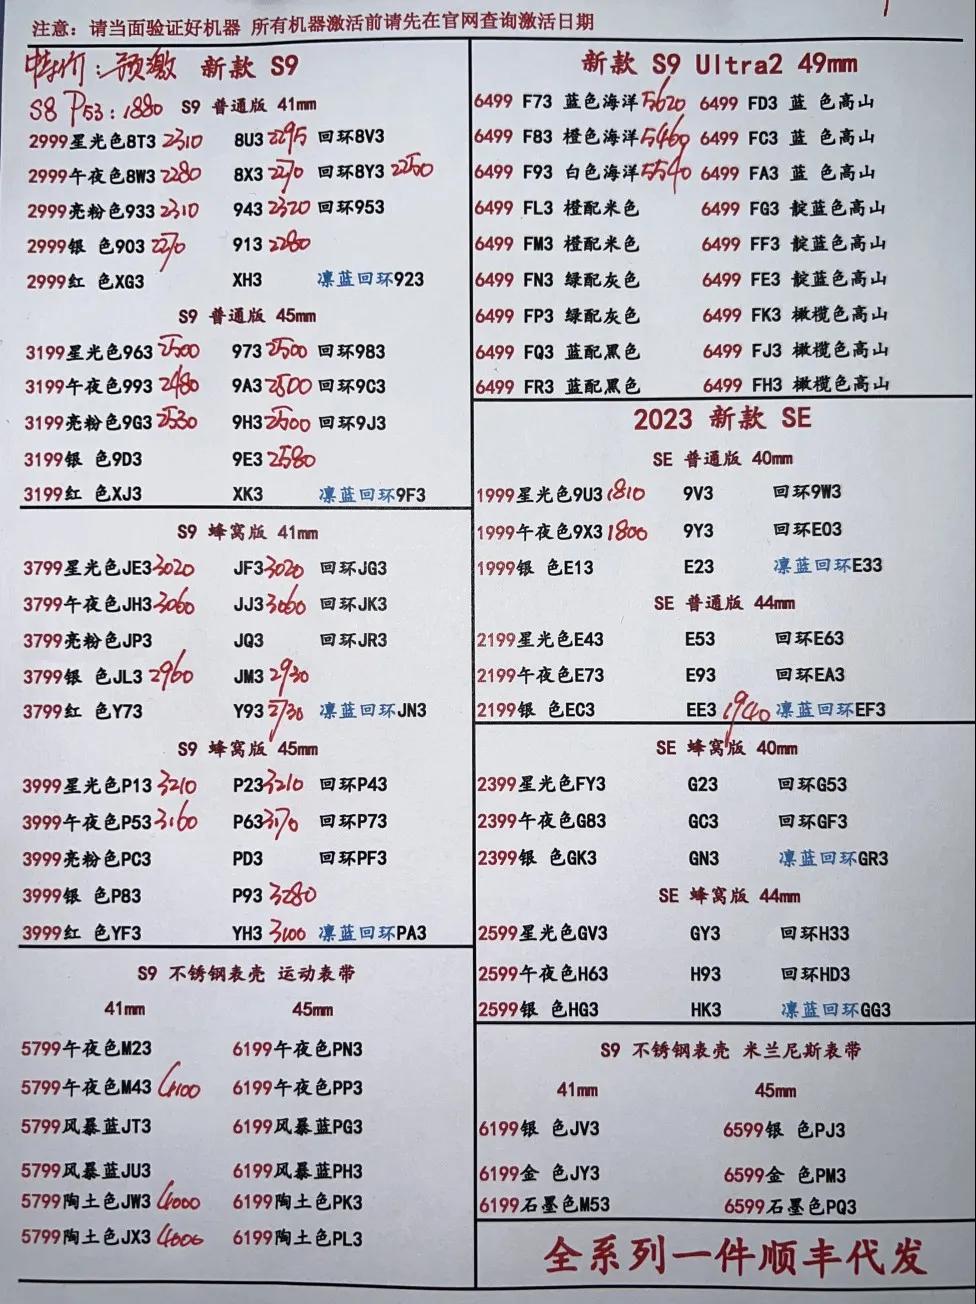 注意：请当面验证好机器 所有机器激活前请先在官网查询激活日期
特价：预激 新款 S9
S8 P53：1880 S9 普通版 41mm
2999星光色8T3 2310 8U3 2295 回环8V3
2999午夜色8W3 2280 8X3 2270 回环8Y3 2250
2999亮粉色933 2310 943 2320 回环953
2999银 色903 2270 913 2280
2999红 色XG3 XH3 凛蓝回环923
S9 普通版 45mm
3199星光色963 2500 973 2500 回环983
3199午夜色993 2480 9A3 2500 回环9C3
3199亮粉色9G3 2530 9H3 2500 回环9J3
3199银 色9D3 9E3 2580
3199红 色XJ3 XK3 凛蓝回环9F3
S9 蜂窝版 41mm
3799星光色JE3 3020 JF3 3020 回环JG3
3799午夜色JH3 3060 JJ3 3060 回环JK3
3799亮粉色JP3 JQ3 回环JR3
3799银 色JL3 2960 JM3 2930
3799红 色Y73 Y93 2730 凛蓝回环JN3
S9 蜂窝版 45mm
3999星光色P13 3210 P23 3210 回环P43
3999午夜色P53 3160 P63 3170 回环P73
3999亮粉色PC3 PD3 回环PF3
3999银 色P83 P93 3280
3999红 色YF3 YH3 3100 凛蓝回环PA3
S9 不锈钢表壳 运动表带
41mm 45mm
5799午夜色M23 6199午夜色PN3
5799午夜色M43 4100 6199午夜色PP3
5799风暴蓝JT3 6199风暴蓝PG3
5799风暴蓝JU3 6199风暴蓝PH3
5799陶土色JW3 4000 6199陶土色PK3
5799陶土色JX3 4000 6199陶土色PL3
新款 S9 Ultra2 49mm
6499 F73 蓝色海洋 5620 6499 FD3 蓝 色高山
6499 F83 橙色海洋 5460 6499 FC3 蓝 色高山
6499 F93 白色海洋 5540 6499 FA3 蓝 色高山
6499 FL3 橙配米色 6499 FG3 靛蓝色高山
6499 FM3 橙配米色 6499 FF3 靛蓝色高山
6499 FN3 绿配灰色 6499 FE3 靛蓝色高山
6499 FP3 绿配灰色 6499 FK3 橄榄色高山
6499 FQ3 蓝配黑色 6499 FJ3 橄榄色高山
6499 FR3 蓝配黑色 6499 FH3 橄榄色高山
2023 新款 SE
SE 普通版 40mm
1999星光色9U3 1810 9V3 回环9W3
1999午夜色9X3 1800 9Y3 回环E03
1999银 色E13 E23 凛蓝回环E33
SE 普通版 44mm
2199星光色E43 E53 回环E63
2199午夜色E73 E93 回环EA3
2199银 色EC3 EE3 1940 凛蓝回环EF3
SE 蜂窝版 40mm
2399星光色FY3 G23 回环G53
2399午夜色G83 GC3 回环GF3
2399银 色GK3 GN3 凛蓝回环GR3
SE 蜂窝版 44mm
2599星光色GV3 GY3 回环H33
2599午夜色H63 H93 回环HD3
2599银 色HG3 HK3 凛蓝回环GG3
S9 不锈钢表壳 米兰尼斯表带
41mm 45mm
6199银 色JV3 6599银 色PJ3
6199金 色JY3 6599金 色PM3
6199石墨色M53 6599石墨色PQ3
全系列一件顺丰代发